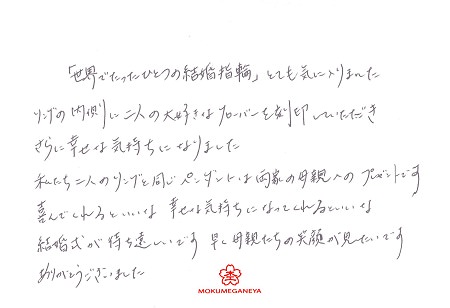 「世界でたったひとつの結婚指輪」とても気に入りました
リングの内側に二人の大好きなクローバーを刻印していただき
さらに幸せな気持ちになりました
私たち二人のリングと同じペンダントは両家の母親へのプレゼントです
喜んでくれるといいな 幸せな気持ちになってくれるといいな
結婚式が待ち遠しいです 早く母親たちの笑顔が見たいです
ありがとうございました
MOKUMEGANEYA